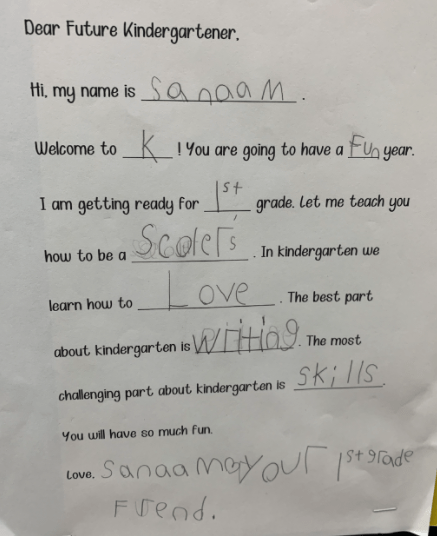 Dear Future Kindergartener,
Hi, my name is Sanaam.
Welcome to K! You are going to have a Fun year.
I am getting ready for 1st grade. Let me teach you
how to be a Scolers. In kindergarten we
learn how to Love. The best part
about kindergarten is writing. The most
challenging part about kindergarten is skills.
You will have so much fun.
Love, Sanaam your 1st grade
Frend.